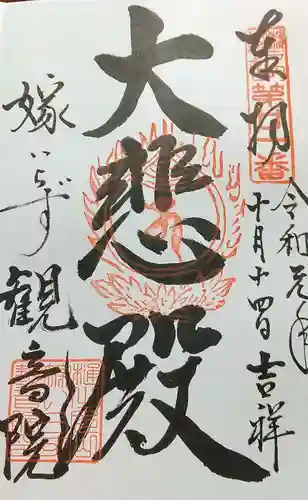 奉拝
令和元年
十月十四日 吉祥
大悲殿
嫁いらず観音院